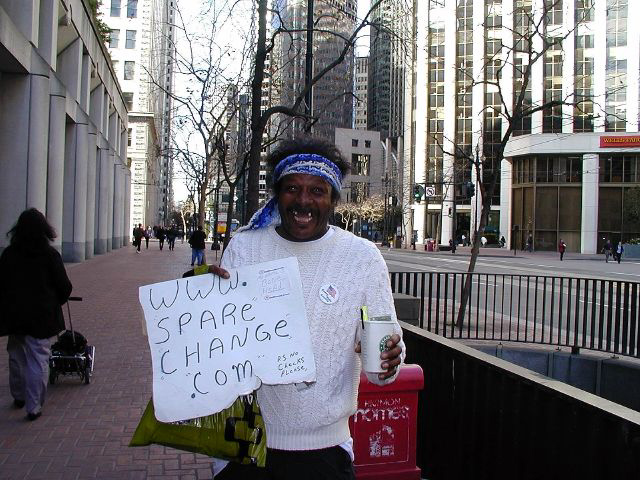 WWW.
"SPARE
CHANGE"
"COM"
P.S NO
CHECKS
PLEASE,
HARMON
HOMES
WELLS FARGO